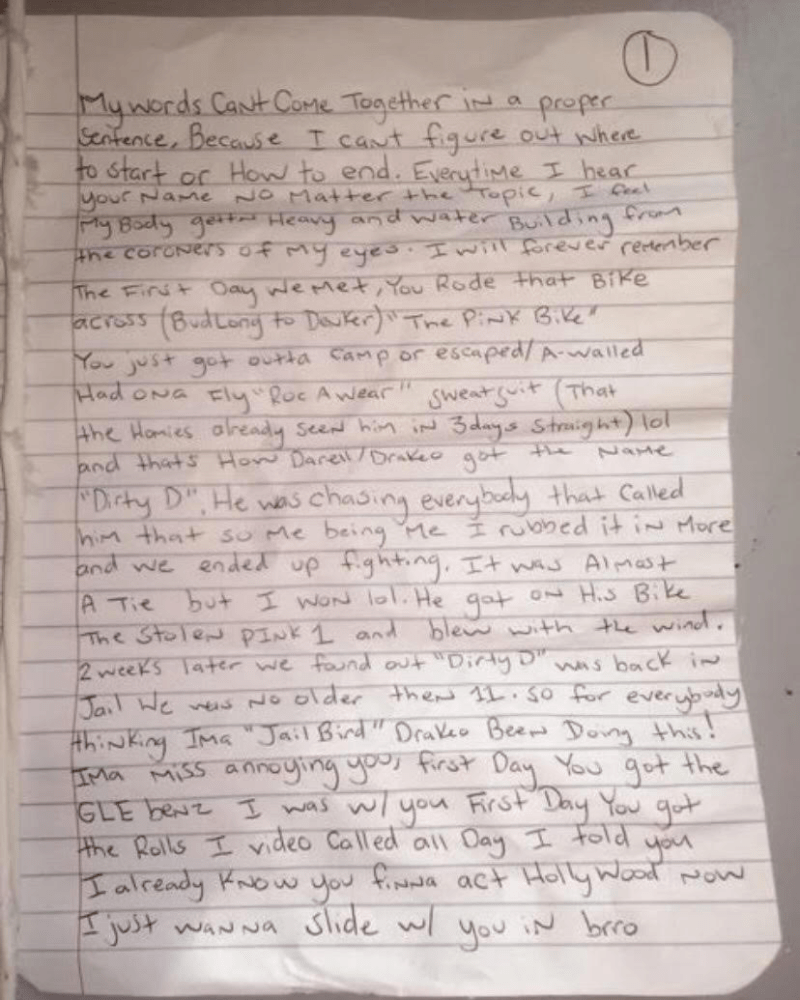 1
My words Cant Come Together in a proper
Sentence, Because I cant figure out where
to start or How to end. Everytime I hear
your Name No Matter the Topic, I feel
My Body gettn Heavy and water Building from
the coroners of my eyes. I will forever remember
The First Day We Met, You Rode that Bike
across (BudLong to Denker) "The Pink Bike"
You just got outta Camp or escaped/A-walled
Had on a Fly "Roc A wear" sweatsuit (That
the Homies already seen him in 3days straight) lol
and thats How Darell/Drakeo got the Name
"Dirty D". He was chasing everybody that Called
him that so Me being Me I rubbed it in More
and we ended up fighting. It was Almost
A Tie but I won lol. He got on His Bike
The Stolen Pink 1 and blew with the wind.
2 weeks later we found out "Dirty D" was back in
Jail We was No older then 11. So for everybody
thinking Ima "Jail Bird" Drakeo Been Doing this!
Ima miss annoying you, first Day You got the
GLE benz I was w/ you First Day You got
the Rolls I video Called all Day I told you
I already Know you finna act HollyWood Now
I just wanna slide w/ you in brro